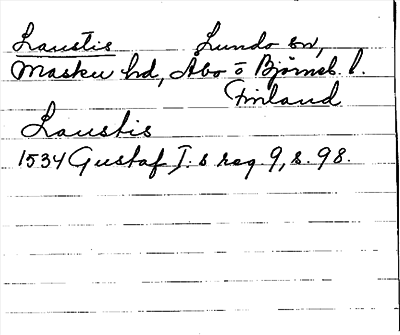 Laustis Lundo sn,
Masku hd, Åbo o Björneb. l.
Finland
Laustis
1534 Gustaf I:s reg. 9, s. 98.